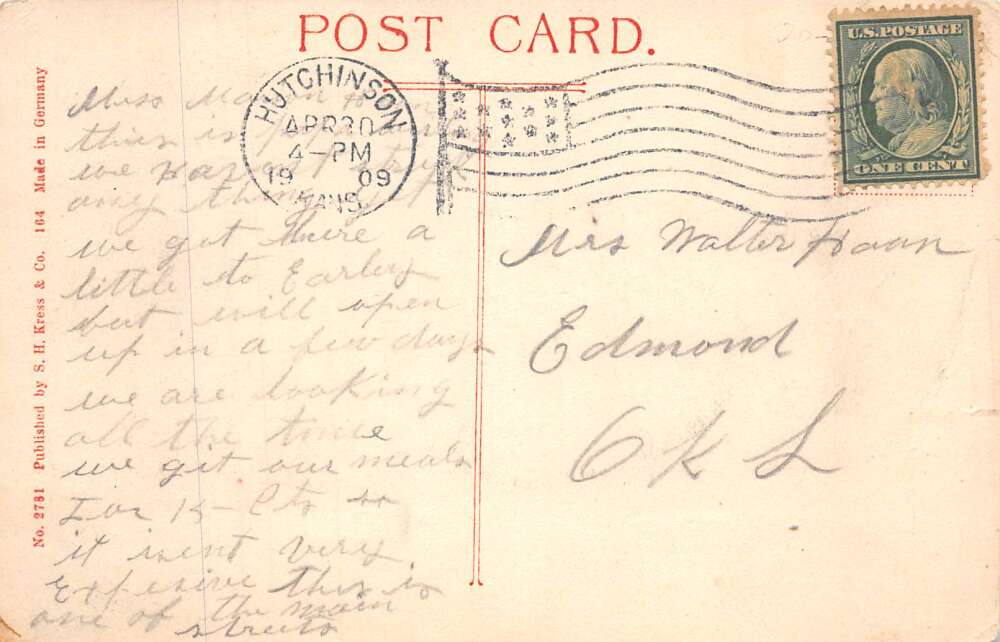 POST CARD.
HUTCHINSON
APR 30
4-PM
19 09
KANS.
U.S. POSTAGE
ONE CENT
No. 2781 Published by S. H. Kress & Co. 164 Made in Germany
Miss
this is
we
any thing
we got there a
little to Earley
but will open
up in a few days
we are looking
all the time
we git our meals
For 15-Cts so
it isent very
Expesive this is
one of the main
streets
Mrs Walter Haan
Edmond
Okl